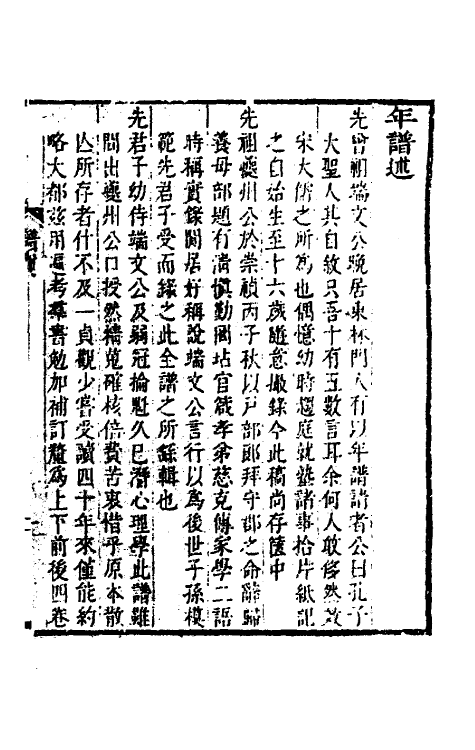 年譜述
先曾祖端文公晚居東林門人有以年譜請者公曰孔子
大聖人其自敘只吾十有五數言耳余何人敢侈然效
宋大儒之所為也偶憶幼時趨庭就塾諸事拾片紙記
之自始生至十六歲隨意撮錄今此稿尚存篋中
先祖夔州公於崇禎丙子秋以戶部郎拜守郡之命辭歸
養母部題有清慎勤罔玷官箴孝弟慈克傳家學二語
時稱實錄閒居好稱說端文公言行以為後世子孫模
範先君子受而錄之此全譜之所繇輯也
先君子幼侍端文公及弱冠掄魁久已潛心理學此譜雖
間出夔州公口授然繙蒐確核倍費苦衷惜乎原本散
亡所存者什不及一貞觀少嘗受讀四十年來僅能約
略大都茲用徧考羣書勉加補訂釐為上下前後四卷